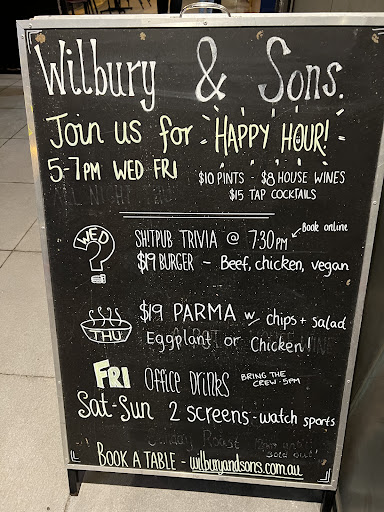 Wilbury & Sons.
Join us for HAPPY HOUR!
5-7PM WED FRI
$10 PINTS - $8 HOUSE WINES
$15 TAP COCKTAILS
WED
?
SH!TPUB TRIVIA @ 7:30PM
Book online
$19 BURGER - Beef, chicken, vegan
THU
$19 PARMA w/ chips + salad
Eggplant or Chicken!
FRI OFFICE DRINKS
BRING THE
CREW - 5PM
Sat-Sun 2 screens - watch sports
Sunday Roast
sold out!
BOOK A TABLE - wilburyandsons.com.au